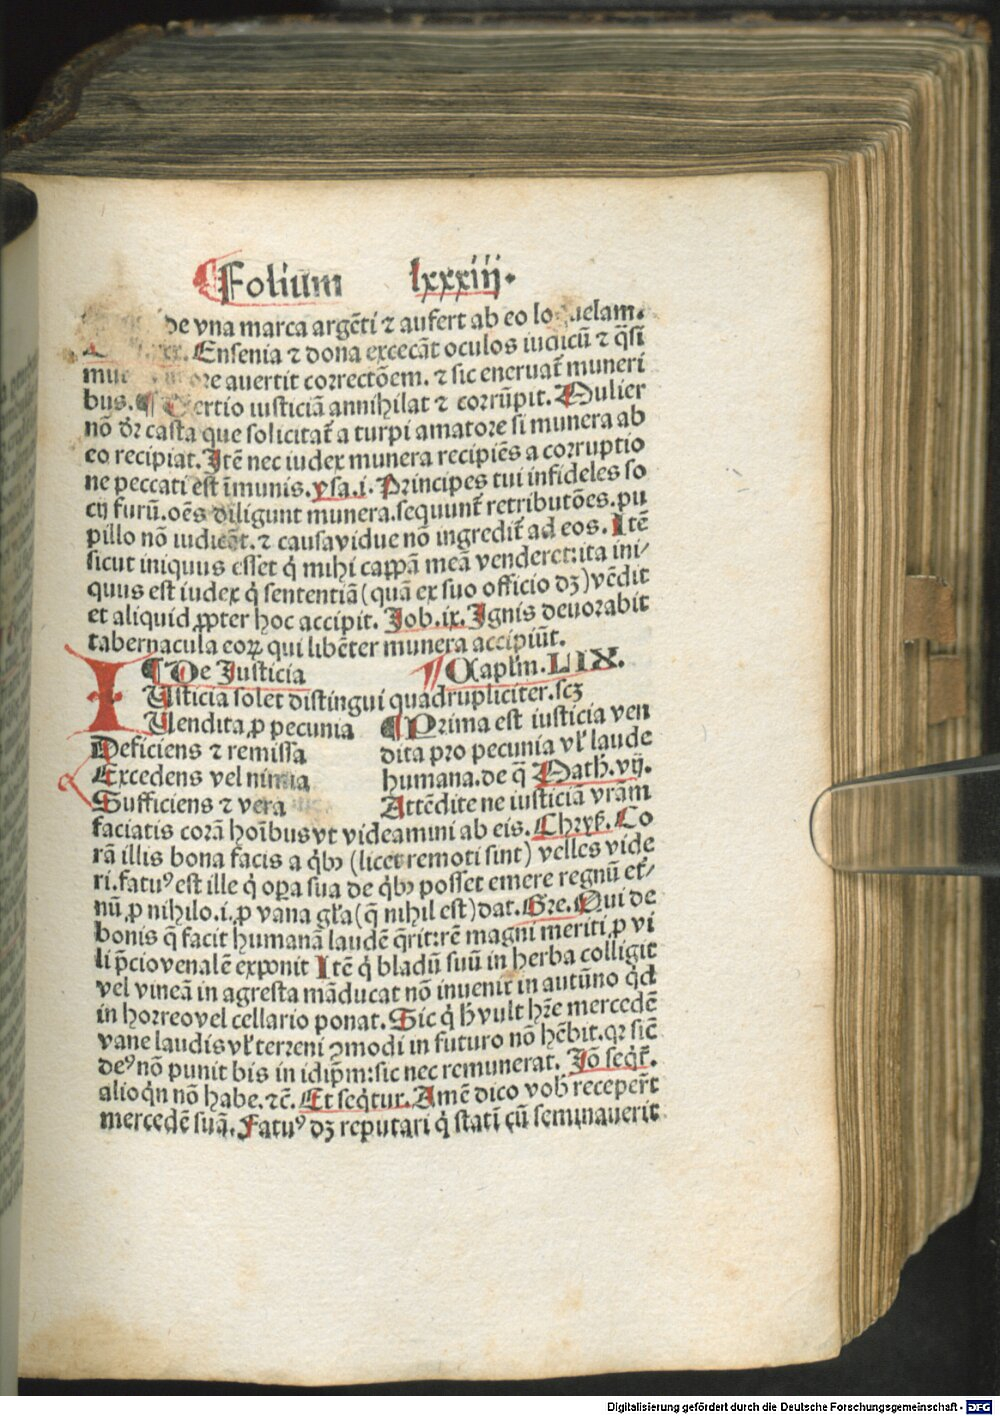 ¶Folium lxxxiij.
de vna marca argēti ⁊ aufert ab eo
Ensenia ⁊ dona excecāt oculos iudicū ⁊ q̄si
auertit correctōem. ⁊ sic eneruat̄ muneri
bus. ¶ Tertio iusticiā annihilat ⁊ corrūpit. Mulier
nō dr̄ casta que solicitat̄ a turpi amatore si munera ab
eo recipiat. Itē nec iudex munera recipiēs a corruptio
ne peccati est īmunis. ysa. i. Principes tui infideles so
cij furū. oēs diligunt munera. sequunt̄ retributōes. pu
pillo nō iudicāt. ⁊ causa vidue nō ingredit̄ ad eos. Itē
sicut iniquus esset q̇ mihi cappā meā venderet: ita ini⸗
quus est iudex q̇ sententiā (quā ex suo officio dꝫ) vēdit
et aliquid ꝓpter hoc accipit. Job. ix. Ignis deuorabit
tabernacula eoꝝ qui libēter munera accipiūt.
¶ De Justicia ¶ Caplm̄. LIX.
IUsticia solet distingui quadrupliciter. scꝫ
Uendita ꝓ pecunia
Deficiens ⁊ remissa
Excedens vel nimia
Sufficiens ⁊ vera
¶ Prima est iusticia ven
dita pro pecunia vl̕ laude
humana. de q̄ Math̄. vij.
Attēdite ne iusticiā vrām
faciatis corā hoībus vt videamini ab eis. Chryṡ. Co
rā illis bona facis a q̇bꝰ (licet remoti sint) velles vide
ri. fatuꝰ est ille q̇ oꝑa sua de q̇bꝰ posset emere regnū et̄⸗
nū ꝓ nihilo. i. ꝓ vana gl̕a (q̄ nihil est) dat. Gre. Qui de
bonis q̄ facit humanā laudē q̄rit: rē magni meriti ꝓ vi
li p̄cio venalē exponit Itē q̇ bladū suū in herba colligit
vel vineā in agresta māducat nō inuenit in autūno q̇d
in horreo vel cellario ponat. Sic q̇ h̄ vult hr̄e mercedē
vane laudis vl̕ terreni ꝯmodi in futuro nō hēbit. qꝛ sic̄
deꝰ nō punit bis in idip̄m: sic nec remunerat. Jō seq̇t̄.
alioq̇n nō habe. ⁊c̄. Et seq̇tur. Amē dico vob̄ receper̄t
mercedē suā. Fatuꝰ dꝫ reputari q̇ statī cū seminauerit
Digitalisierung gefördert durch die Deutsche Forschungsgemeinschaft - DFG